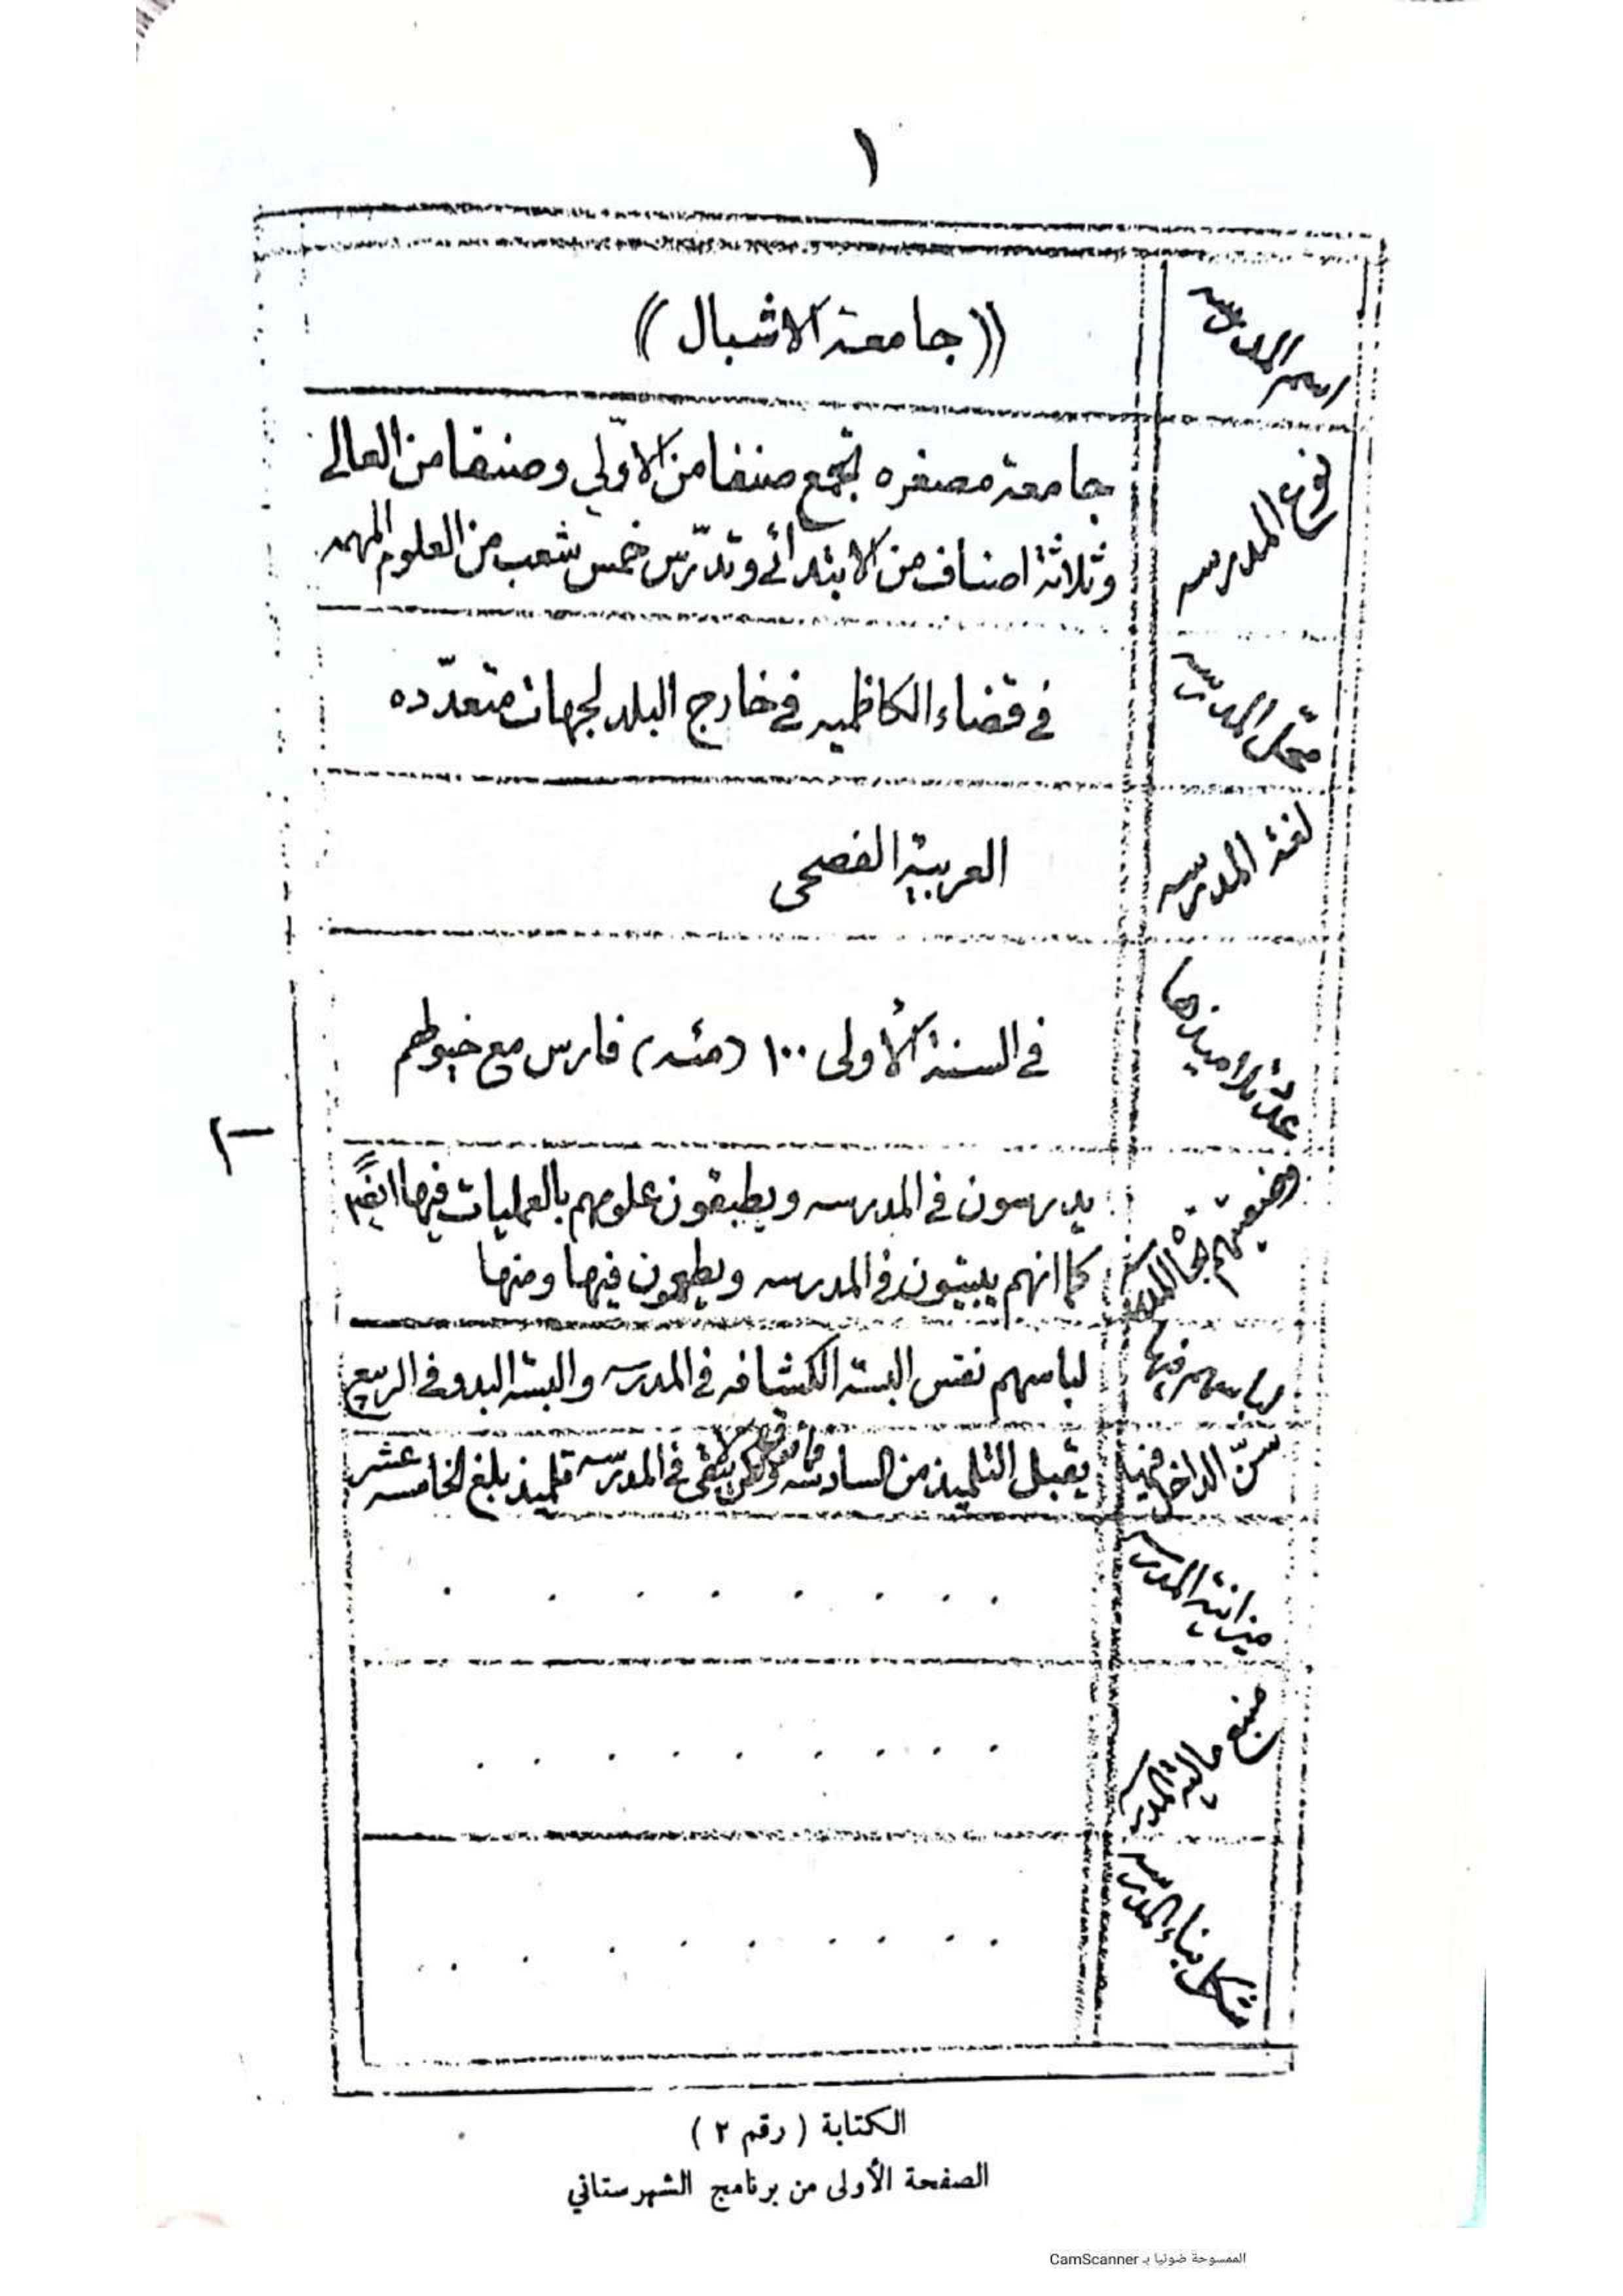 ١
اسم المدرسه
((جامعة الاشبال))
نوع المدرسه
جامعة مصغره تجمع صنفا من الاوّلي وصنفا من العالي
وثلاثة اصناف من الابتدائي وتدرّس خمس شعب من العلوم المهمه
محّل المدرسه
في قضاء الكاظميه في خارج البلد لجهات متعدّده
لغة المدرسه
العربية الفصحى
عدّة تلاميذها
في السنة الأولى ١٠٠ (مئه) فارس مع خيولهم
وضعيتهم تجاه المدرسه
يدرسون في المدرسه ويطبقون علومهم بالعمليات فيها ايضًا
كما انهم يبيتون في المدرسه ويطهون فيها ومنها
لباسهم فيها
لباسهم نفس البسة الكشافه في المدرسه والبسة البدو في الربيع
سنّ الداخل فيها
يقبل التلميذ من السادسه فما فوق ولا يبقى في المدرسه تلميذ بلغ الخامسه عشر
ميزانية المدرسه
. . . . . . . .
منبع مالية المدرسه
. . . . . . . . .
شكل بناء المدرسه
. . . . . . . . .
الكتابة (رقم ٢)
الصفحة الأولى من برنامج الشهرستاني
الممسوحة ضوئيا بـ CamScanner